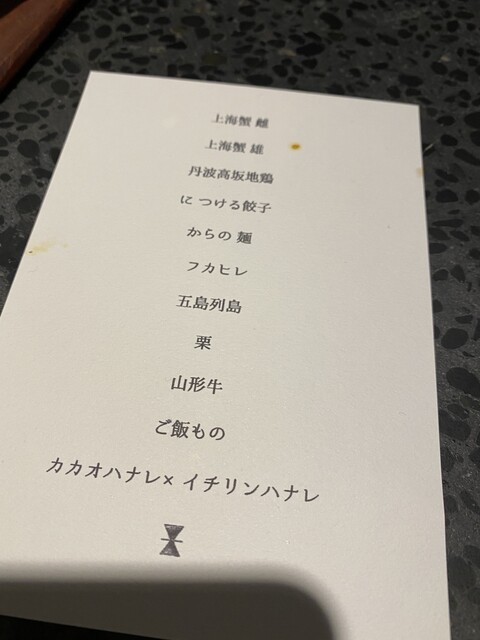 上海蟹 雌
上海蟹 雄
丹波高坂地鶏
に つける餃子
からの 麺
フカヒレ
五島列島
栗
山形牛
ご飯もの
カカオハナレ× イチリンハナレ